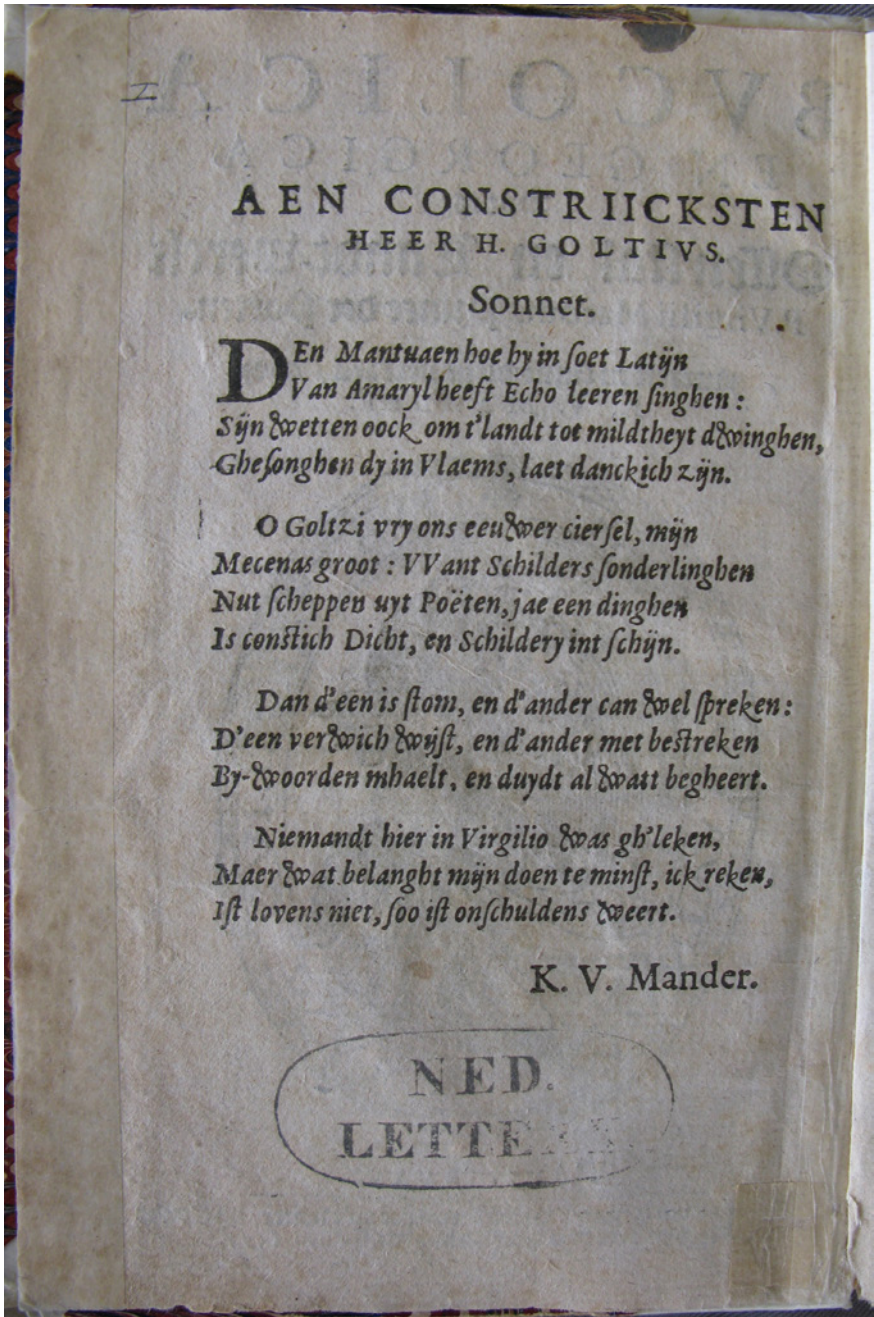 I
AEN CONSTRIICKSTEN
HEER H. GOLTIVS.
Sonnet.
DEn Mantuaen hoe hy in ſoet Latijn
Van Amaryl heeft Echo leeren ſinghen :
Sijn wetten oock om t'landt tot mildtheyt dwinghen,
Gheſonghen dy in Vlaems, laet danckich zijn.
O Goltzi vry ons eeuwer cierſel, mijn
Mecenas groot : VVant Schilders ſonderlinghen
Nut ſcheppen uyt Poëten, jae een dinghen
Is conſtich Dicht, en Schildery int ſchijn.
Dan d'een is ſtom, en d'ander can wel ſpreken :
D'een verwich wijſt, en d'ander met beſtreken
By-woorden mhaelt, en duydt al watt begheert.
Niemandt hier in Virgilio was gh'leken,
Maer wat belanght mijn doen te minſt, ick reken,
Iſt lovens niet, ſoo iſt onſchuldens weert.
K. V. Mander.
NED.